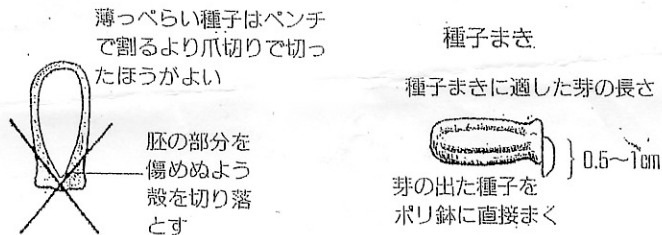 薄っぺらい種子はペンチ
で割るより爪切りで切っ
たほうがよい
胚の部分を
傷めぬよう
殻を切り落
とす
種子まき
種子まきに適した芽の長さ
0.5〜1cm
芽の出た種子を
ポリ鉢に直接まく